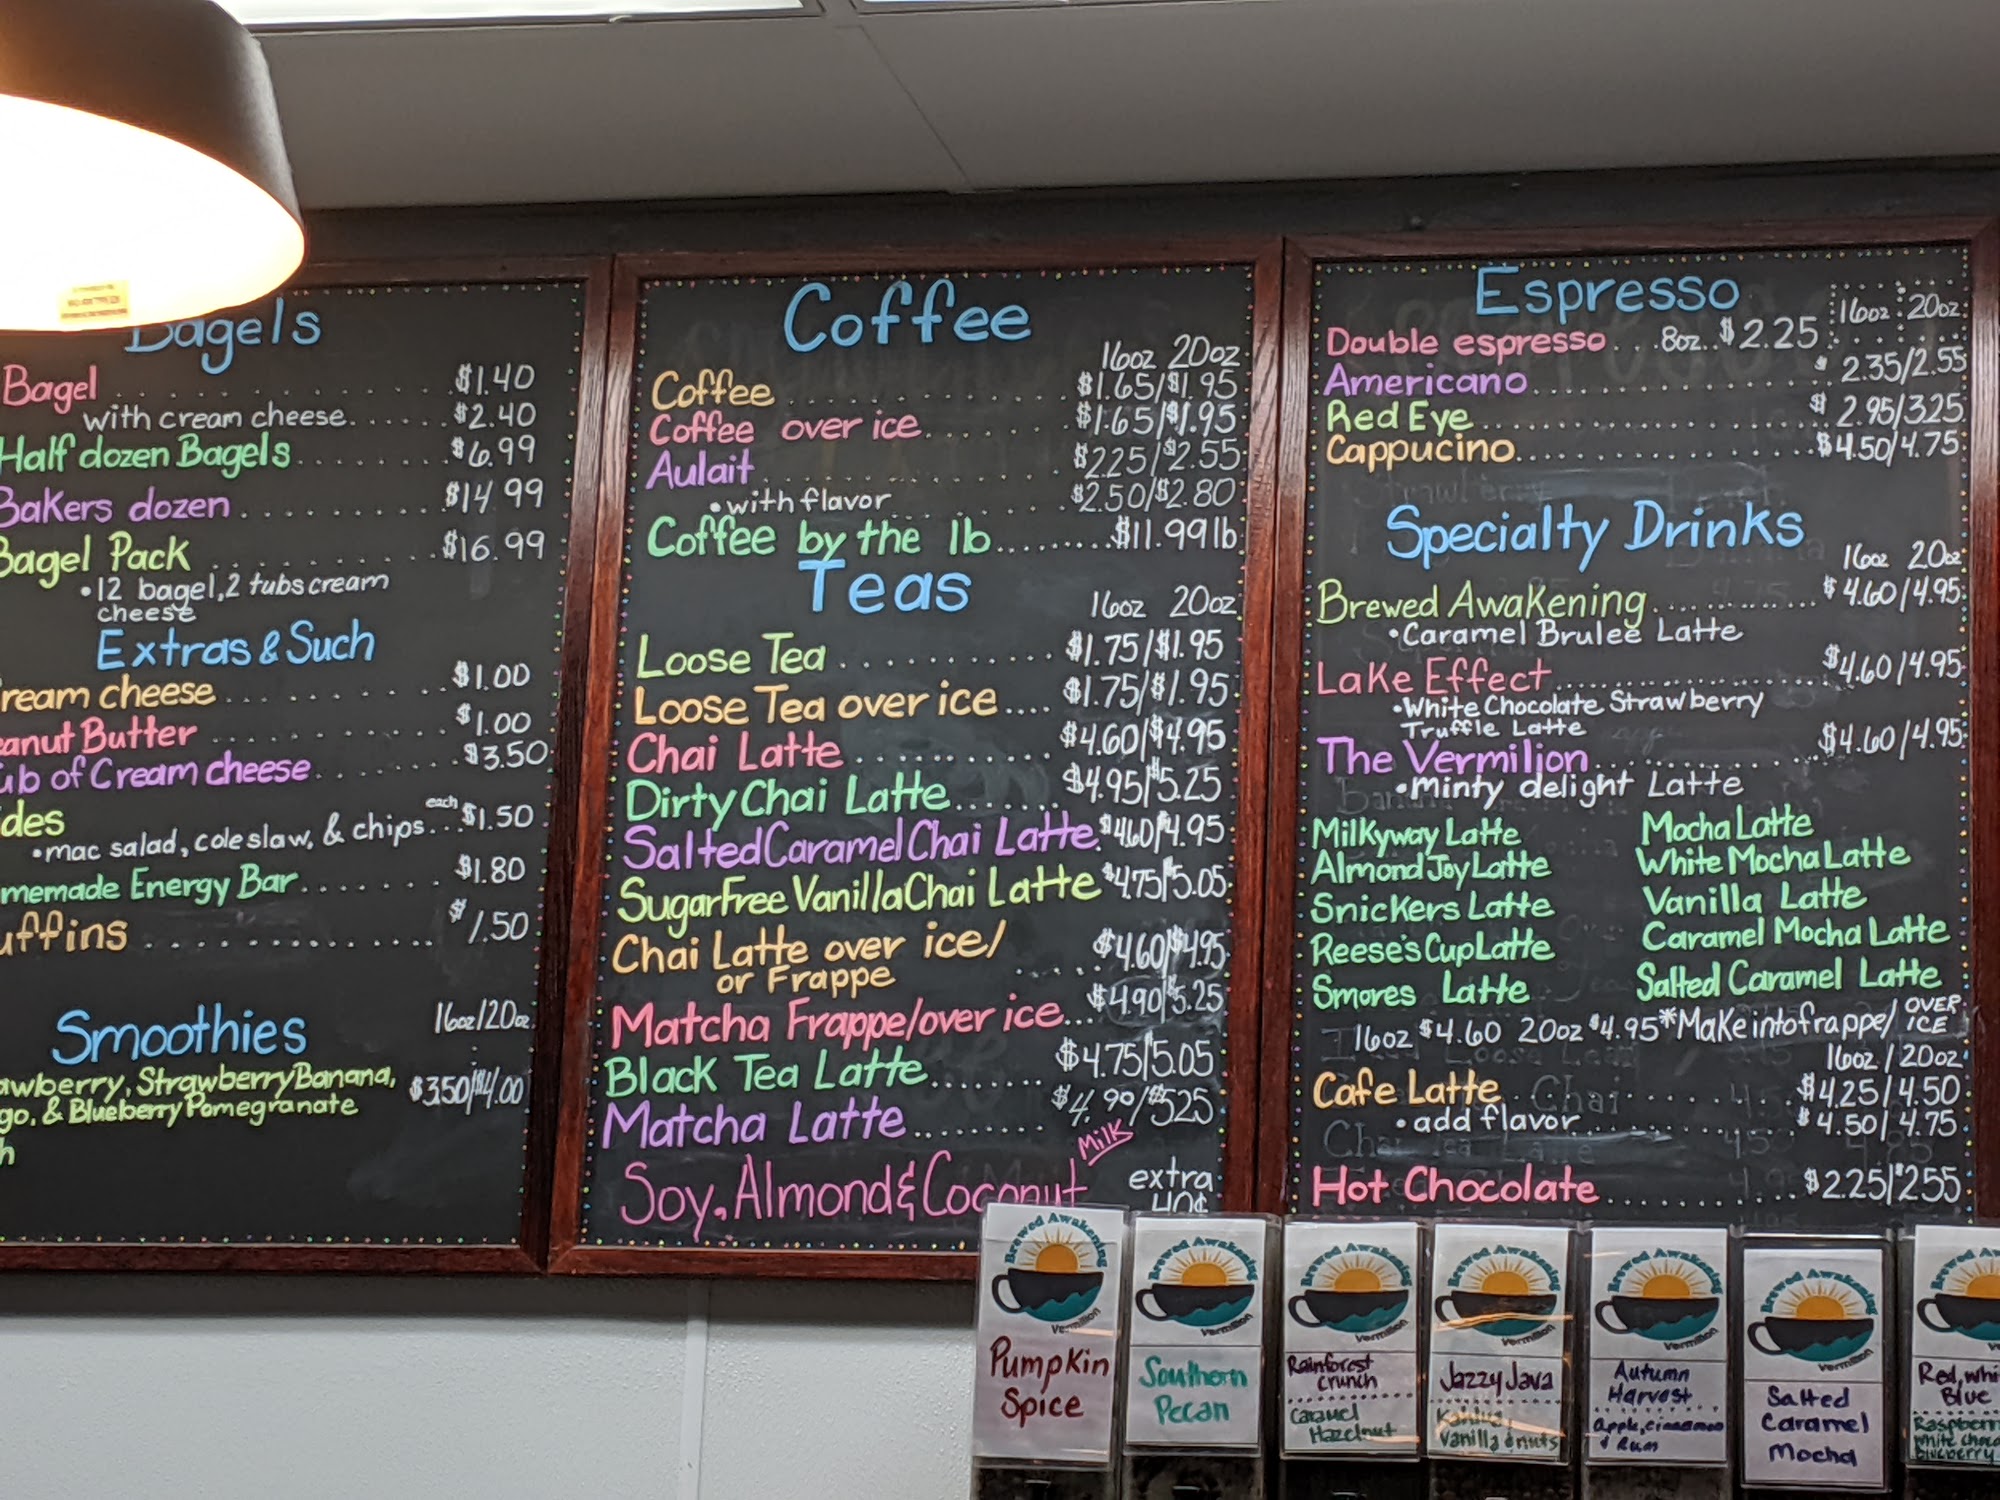 Bagels
Bagel . . . $1.40
with cream cheese . . . $2.40
Half dozen Bagels . . . $6.99
Bakers dozen . . . $14.99
Bagel Pack . . . $16.99
•12 bagel, 2 tubs cream
cheese
Extras & Such
ream cheese . . . $1.00
eanut Butter . . . $1.00
ub of Cream cheese . . . $3.50
des
•mac salad, coleslaw, & chips . . . each $1.50
memade Energy Bar . . . $1.80
uffins . . . $1.50
Smoothies 16oz/20oz
awberry, Strawberry Banana,
go, & Blueberry Pomegranate $3.50/$4.00
h
Coffee
16oz 20oz
Coffee . . . $1.65/$1.95
Coffee over ice . . . $1.65/$1.95
Aulait . . . $2.25/$2.55
•with flavor . . . $2.50/$2.80
Coffee by the lb . . . $11.99 lb
Teas
16oz 20oz
Loose Tea . . . $1.75/$1.95
Loose Tea over ice . . . $1.75/$1.95
Chai Latte . . . $4.60/$4.95
Dirty Chai Latte . . . $4.95/$5.25
Salted Caramel Chai Latte. $4.60/$4.95
Sugar Free Vanilla Chai Latte $4.75/$5.05
Chai Latte over ice/
or Frappe . . . $4.60/$4.95
Matcha Frappe/over ice . . . $4.90/$5.25
Black Tea Latte . . . $4.75/$5.05
Matcha Latte . . . $4.90/$5.25
Soy, Almond & Coconut Milk extra
40¢
Espresso
16oz 20oz
Double espresso . . . 8oz . . $2.25
Americano . . . $2.35/2.55
Red Eye . . . $2.95/3.25
Cappucino . . . $4.50/4.75
Specialty Drinks
16oz 20oz
Brewed Awakening . . . $4.60/4.95
•Caramel Brulee Latte
Lake Effect . . . $4.60/4.95
•White Chocolate Strawberry
Truffle Latte
The Vermilion . . . $4.60/4.95
•Minty delight Latte
Milkyway Latte Mocha Latte
Almond Joy Latte White Mocha Latte
Snickers Latte Vanilla Latte
Reese's Cup Latte Caramel Mocha Latte
Smores Latte Salted Caramel Latte
16oz $4.60 20oz $4.95 *Make into frappe/ OVER ICE
16oz / 20oz
Cafe Latte . . . $4.25/4.50
•add flavor . . . $4.50/4.75
Hot Chocolate . . . $2.25/$2.55
Brewed Awakening
Vermilion
Pumpkin
Spice
Brewed Awakening
Vermilion
Southern
Pecan
Brewed Awakening
Vermilion
Rainforest
Crunch
Caramel
Hazelnut
Brewed Awakening
Vermilion
Jazzy Java
Kahlua,
Vanilla & nuts
Brewed Awakening
Vermilion
Autumn
Harvest
Apple, cinnamon
& Rum
Brewed Awakening
Vermilion
Salted
Caramel
Mocha
Red, whi
Blue
Raspberr
White choc
blueberry